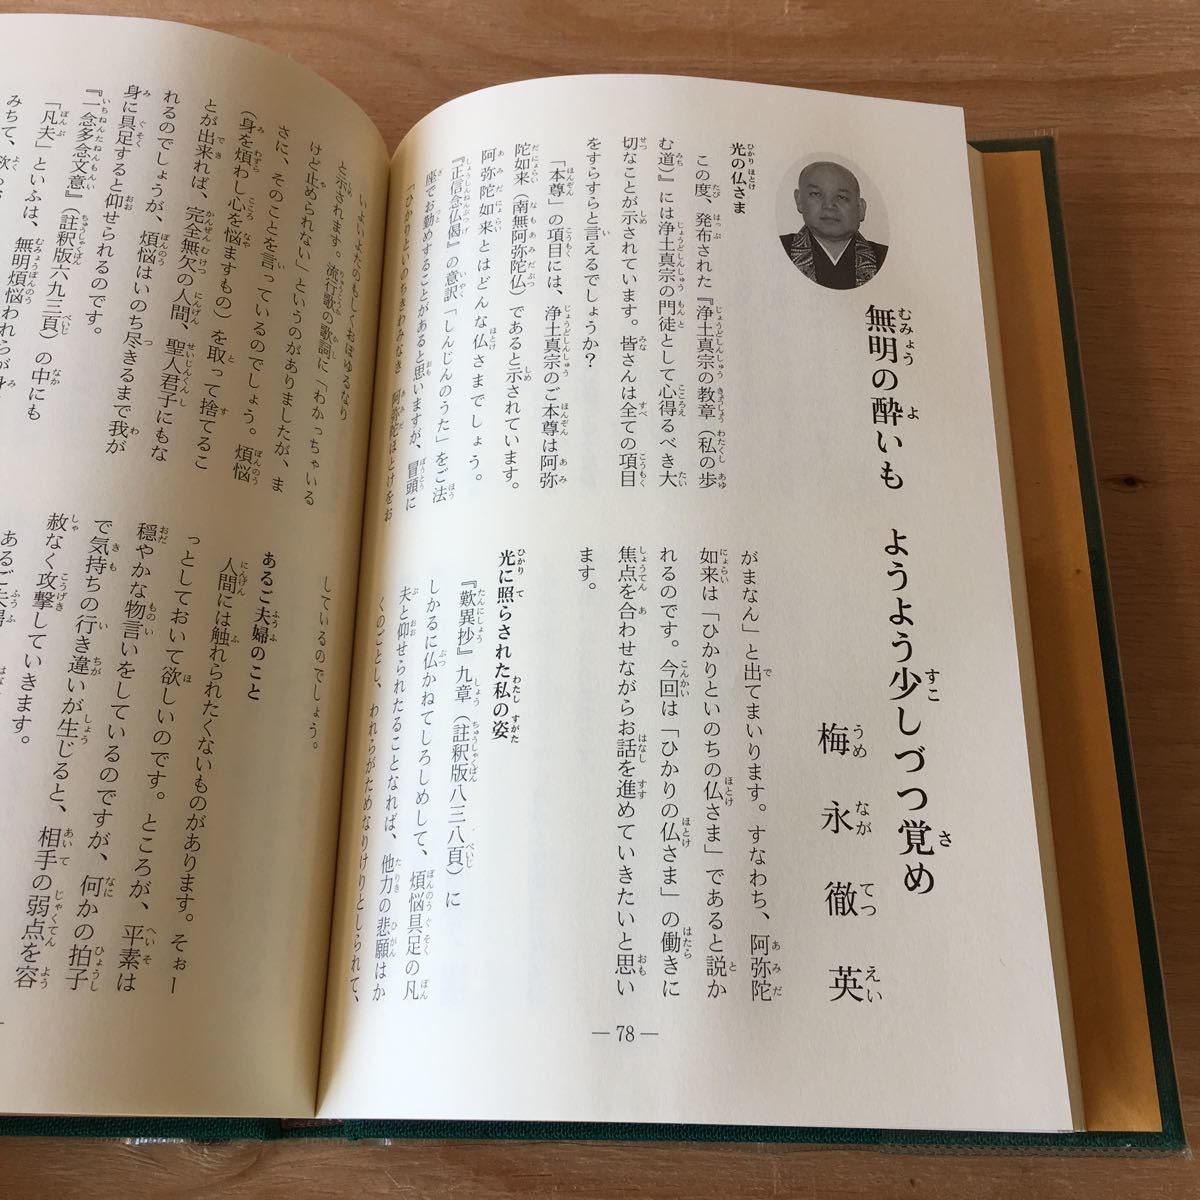 無明の酔いも　ようよう少しづつ覚め
梅永徹英
光の仏さま
この度、発布された『浄土真宗の教章（私の歩
む道）』には浄土真宗の門徒として心得るべき大
切なことが示されています。皆さんは全ての項目
をすらすらと言えるでしょうか？
「本尊」の項目には、浄土真宗のご本尊は阿弥
陀如来（南無阿弥陀仏）であると示されています。
阿弥陀如来とはどんな仏さまでしょう。
『正信念仏偈』の意訳「しんじんのうた」をご法
座でお勤めすることがあると思いますが、冒頭に
「ひかりといのちきわみなき　阿弥陀ほとけをお
がまなん」と出てまいります。すなわち、阿弥陀
如来は「ひかりといのちの仏さま」であると説か
れるのです。今回は「ひかりの仏さま」の働きに
焦点を合わせながらお話を進めていきたいと思い
ます。
光に照らされた私の姿
『歎異抄』九章（註釈版八三八頁）に
しかるに仏かねてしろしめして、煩悩具足の凡
夫と仰せられたることなれば、他力の悲願はか
くのごとし、われらがためなりけりとしられて、
― 78 ―
いよいよたのもしくおぼゆるなり
と示されます。流行歌の歌詞に「わかっちゃいる
けど止められない」というのがありましたが、ま
さに、そのことを言っているのでしょう。煩悩
（身を煩わし心を悩ますもの）を取って捨てるこ
とが出来れば、完全無欠の人間、聖人君子にもな
れるのでしょうが、煩悩はいのち尽きるまで我が
身に具足すると仰せられるのです。
『一念多念文意』（註釈版六九三頁）の中にも
「凡夫」といふは、無明煩悩われらが身
みちて、欲
しているのでしょう。
あるご夫婦のこと
人間には触れられたくないものがあります。そぉー
っとしておいて欲しいのです。ところが、平素は
穏やかな物言いをしているのですが、何かの拍子
で気持ちの行き違いが生じると、相手の弱点を容
赦なく攻撃していきます。
あるご夫婦